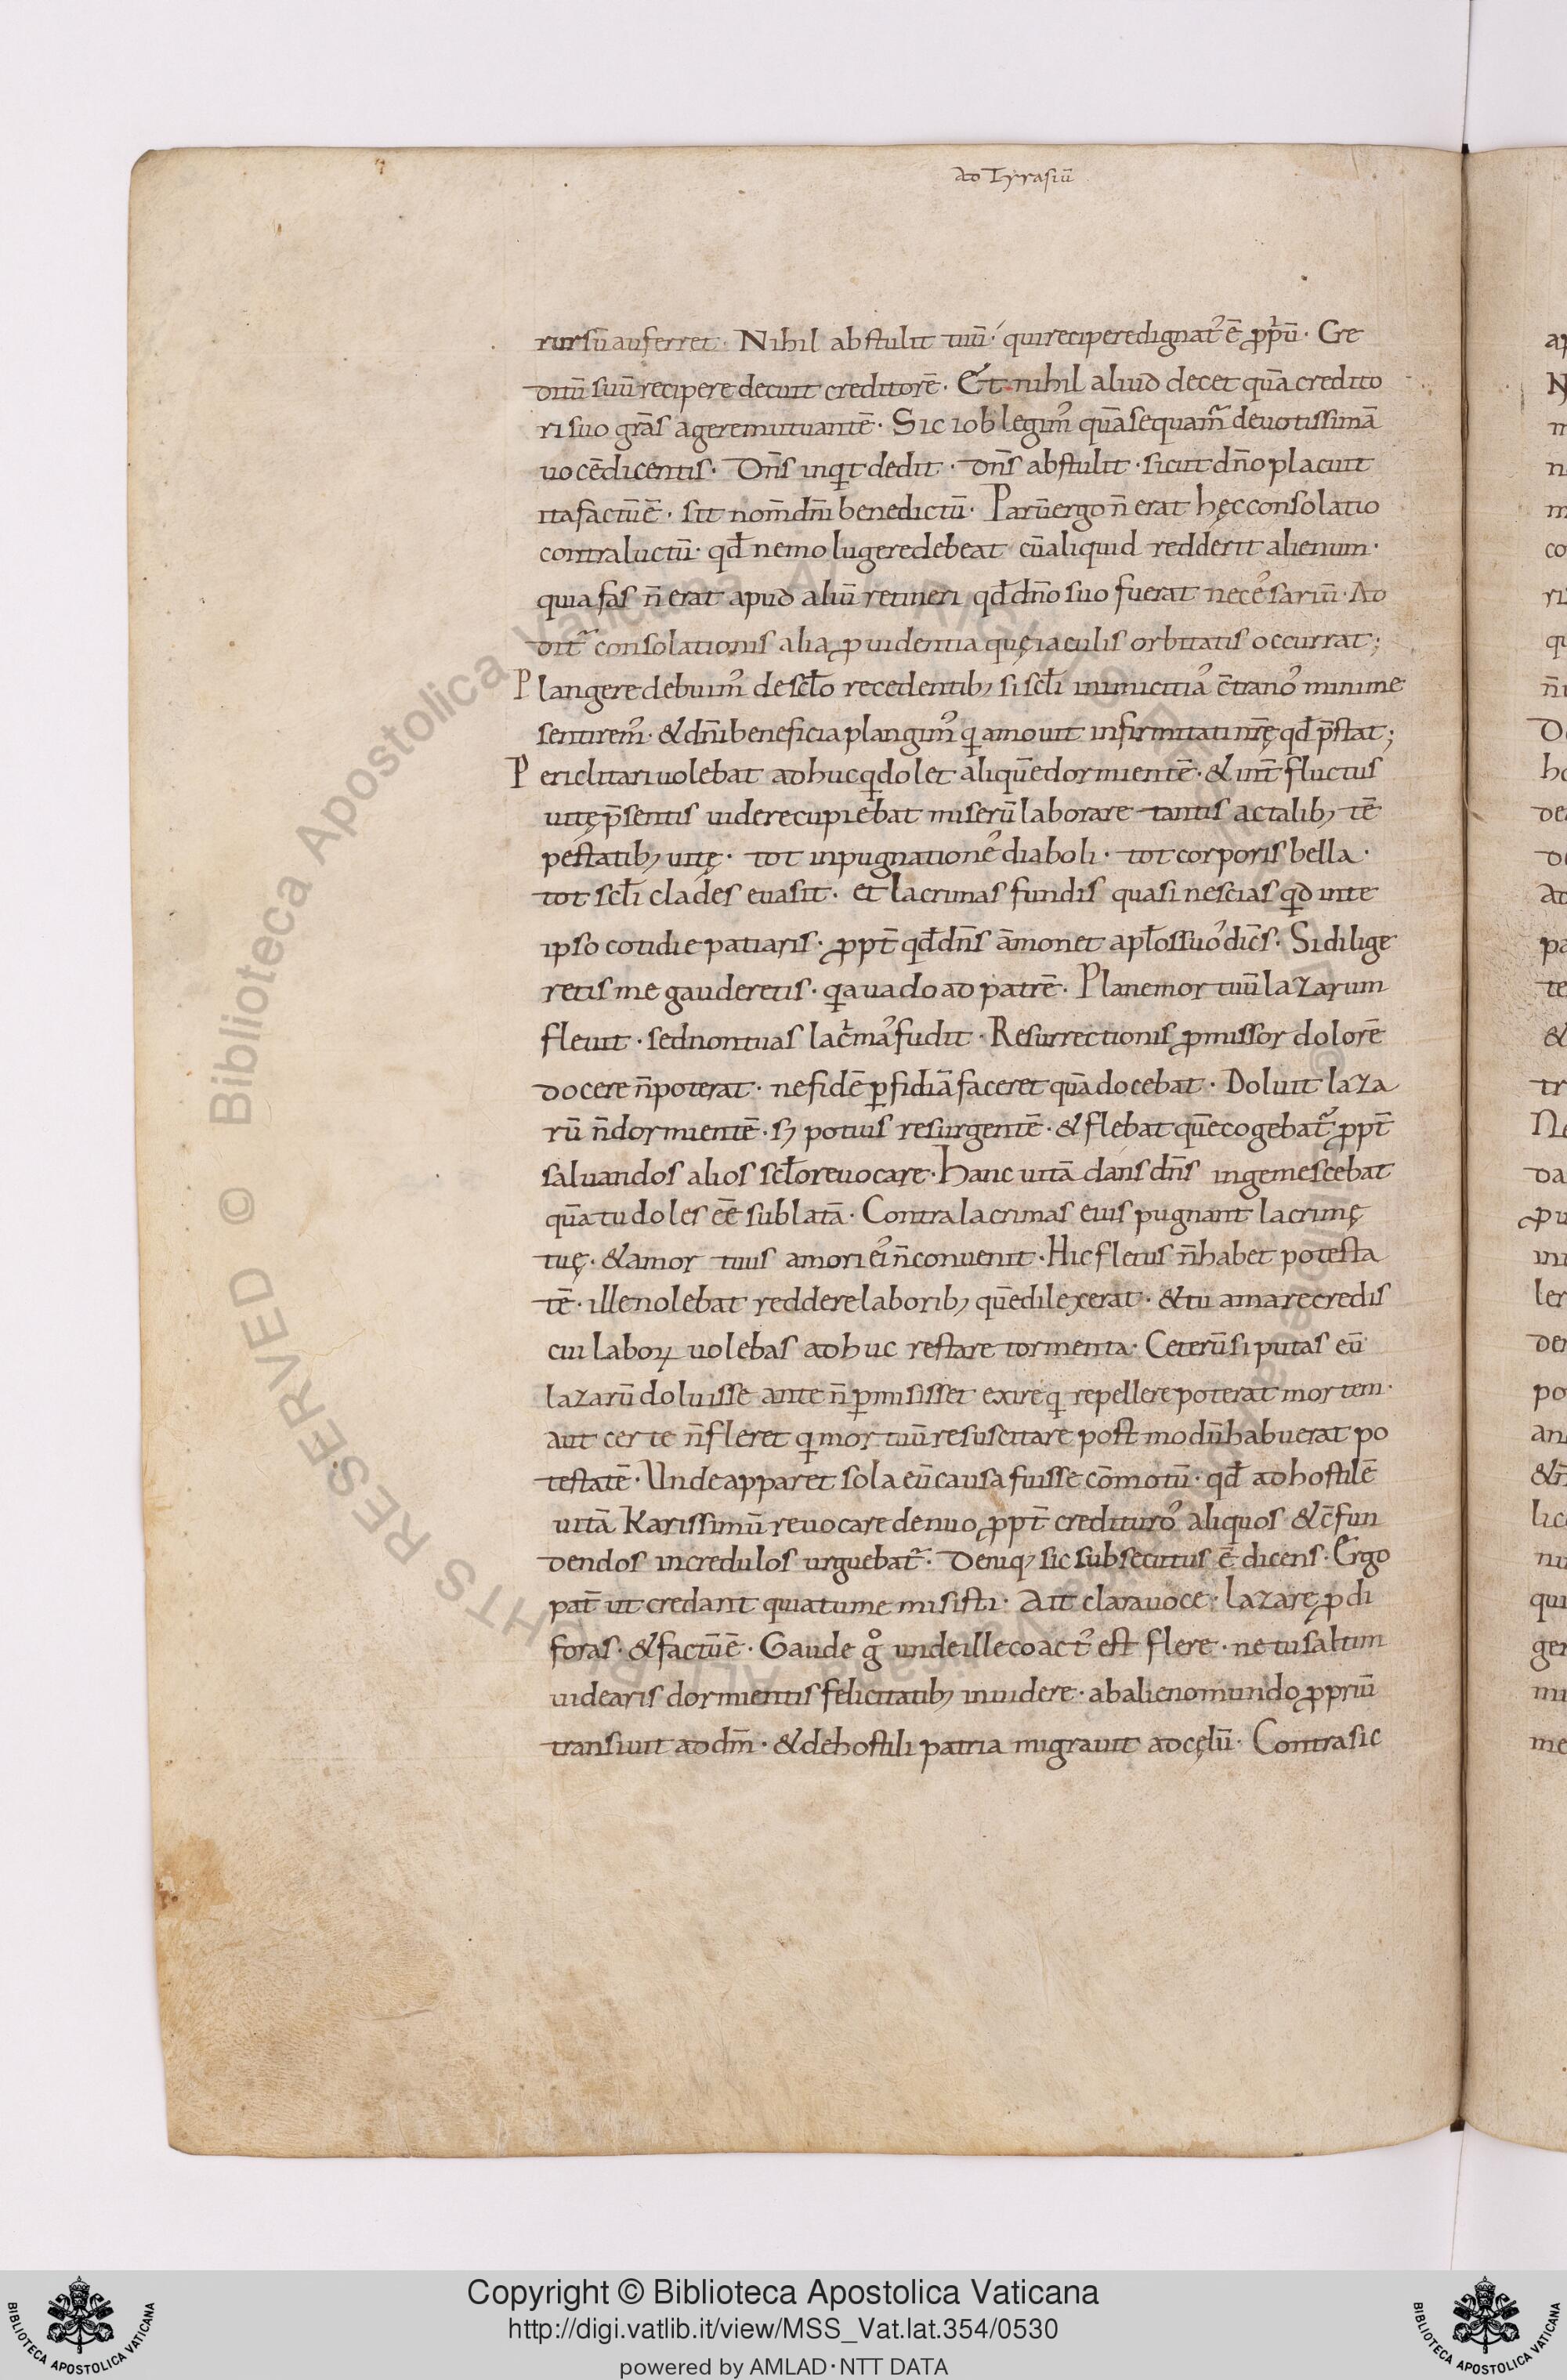 ad Tyrasiū
rursū auferret · Nihil abstulit tuū · qui recipere dignat᾽ ē ꝓpriū · Cre
ditū suū recipere decuit creditorē · Et nihil aliud decet quā credito
ri suo grās agere mutuantē · Sic iob legim᾽ quā sequam̃ deuotissimā
uocē dicentis · Dn̄s inquit dedit · dn̄s abstulit · sicut dn̄o placuit
ita factū ē · sit nom̄ dn̄i benedictū · Parū ergo n̄ erat hęc consolatio
contra luctū · qđ nemo lugere debeat cū aliquid redderit alienum ·
quia fas n̄ erat apud aliū retineri qđ dn̄o suo fuerat nece᾽sariū · Ad
dit̃ consolationis alia ꝓuidentia quę iaculis orbitatis occurrat ;
Plangere debuim᾽ de scl̄o recedentib; si scl̄i inimicitia᾽ c̄trano᾽ minime
sentirem᾽ · & dn̄i beneficia plangim᾽ qi amouit infirmitati nr̄ę qđ p̄stat ;
Periclitari uolebat adhuc qi dolet aliquē dormientē · & int̄ fluctus
uitę p̄sentis uidere cupiebat miserū laborare tantis actalib; tē
pestatib; uitę · tot inpugnatione᾽ diaboli · tot corporis bella ·
tot scl̄i clades euasit · et lacrimas fundis quasi nescias qid in te
ipso cotidie patiaris · ꝓpt̄ qđ dn̄s āmonet apl̄os suo᾽ dic̄s · Si dilige
retis me gauderetis · qia uado ad patrē · Plane mortuū lazarum
fleuit · sed non tuas lacͥma᾽ fudit · Resurrectionis ꝓmissor dolorē
docere n̄ poterat · ne fidē ꝑfidiā faceret quā docebat · Doluit laza
rū n̄ dormientē · s; potius resurgentē · & flebat quē cogebat̃ ꝓpt̄
saluandos alios scl̄o reuocare · Hanc uitā dans dn̄s ingemescebat
quā tu doles eē sublatā · Contra lacrimas eius pugnant lacrimę
tuę · & amor tuus amori ei᾽ n̄ conuenit · Hic fletus n̄ habet potesta
tē · ille nolebat reddere laborib; quē dilexerat · & tu amare credis
cui laboꝝ uolebas adhuc restare tormenta · Ceterū si putas eū
lazarū doluisse ante n̄ ꝑmisisset exire qi repellere poterat mortem ·
aut certe n̄ fleret qi mortuū resuscitare postmodū habuerat po
testatē · Unde apparet sola eū causa fuisse cōmotū · qđ ad hostilē
uitā Karissimū reuocare denuo ꝓpt̄ credituro᾽ aliquos & c̄fun
dendos incredulos urguebat̃ · Deniq; sic subsecutus ē dicens · Ergo
pat̄ ut credant quia tu me misisti · Ait clara uoce · lazare ꝓdi
foras · & factū ē · Gaude gͦ unde ille coact᾽ est flere · ne tu saltim
uidearis dormientis felicitatib; inuidere · ab alieno mundo ꝓpriū
transiuit ad dm̄ · & de hostili patria migrauit ad cęlū · Contra sic
© Biblioteca Apostolica Vaticana ALL RIGHTS RESERVED
Copyright © Biblioteca Apostolica Vaticana
http://digi.vatlib.it/view/MSS_Vat.lat.354/0530
powered by AMLAD·NTT DATA
BIBLIOTECA APOSTOLICA VATICANA
BIBLIOTECA APOSTOLICA VATICANA